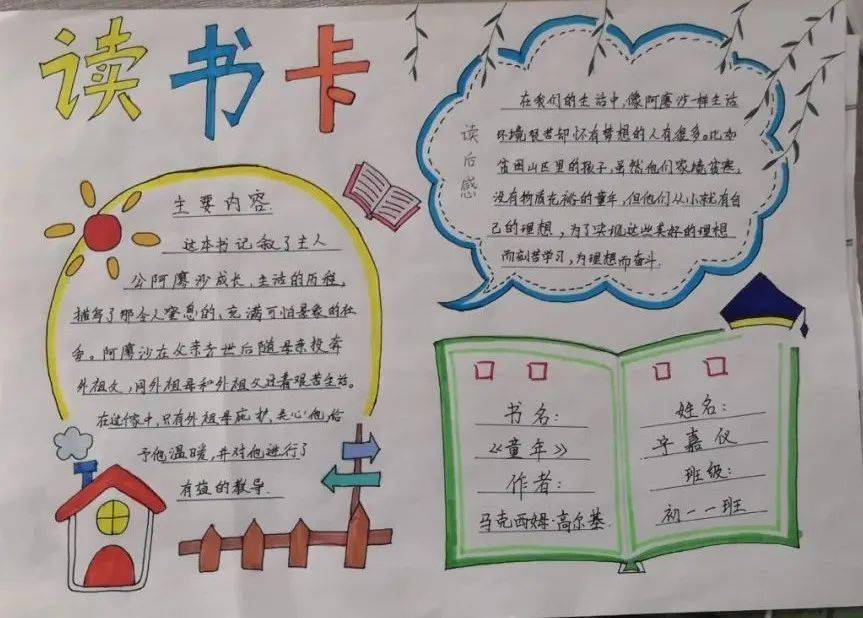 读书卡
主要内容
这本书记叙了主人
公阿廖沙成长、生活的历程,
描写了那令人窒息的,充满可怕景象的社
会。阿廖沙在父亲去世后随母亲投奔
外祖父,同外祖母和外祖父过着艰苦生活。
在这个家中,只有外祖母庇护,关心他,给
予他温暖,并对他进行了
有益的教导.
读后感
在我们的生活中,像阿廖沙一样生活
环境艰苦却怀有梦想的人有很多。比如
贫困山区里的孩子,虽然他们家境贫寒,
没有物质充裕的童年,但他们从小就有自
己的理想,为了实现这些美好的理想
而刻苦学习,为理想而奋斗.
书名:
《童年》
作者:
马克西姆·高尔基.
姓名:
宁嘉仪
班级:
初一一班